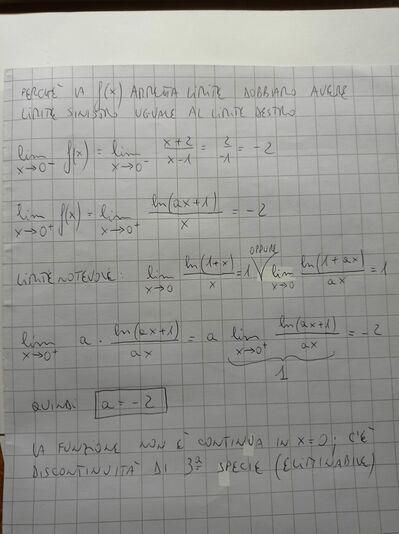 PERCHÈ LA f(x) AMMETTA LIMITE DOBBIAMO AVERE
LIMITE SINISTRO UGUALE AL LIMITE DESTRO
lim x→0⁻ f(x) = lim x→0⁻ (x+2)/(x-1) = 2/-1 = -2
lim x→0⁺ f(x) = lim x→0⁺ ln(ax+1)/x = -2
LIMITE NOTEVOLE: lim x→0 ln(1+x)/x = 1 OPPURE lim x→0 ln(1+ax)/ax = 1
lim x→0⁺ a · ln(ax+1)/ax = a lim x→0⁺ ln(ax+1)/ax = -2
1
QUINDI a = -2
LA FUNZIONE NON È CONTINUA IN x=0; C'È
DISCONTINUITÀ DI 3ª SPECIE (ELIMINABILE)